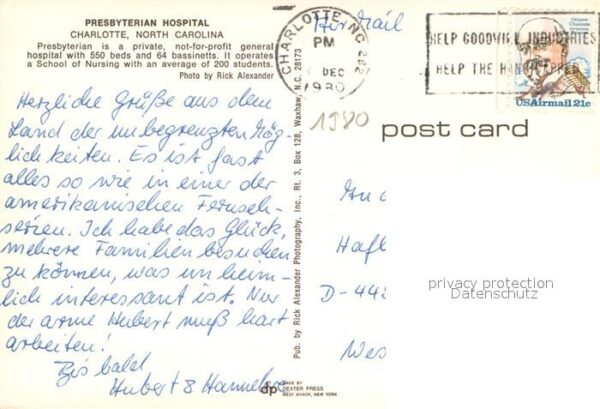 PRESBYTERIAN HOSPITAL
CHARLOTTE, NORTH CAROLINA
Presbyterian is a private, not-for-profit general
hospital with 550 beds and 64 bassinetts. It operates
a School of Nursing with an average of 200 students.
Photo by Rick Alexander
Herzliche Grüße aus dem
Land der unbegrenzten Mög-
lichkeiten. Es ist fast
alles so wie in einer der
amerikanischen Fernseh-
serien. Ich habe das Glück,
mehrere Familien besuchen
zu können, was unheim-
lich interessant ist. Nur
der arme Hubert muß hart
arbeiten!
Bis bald
Hubert & Hannelore
Pub. by Rick Alexander Photography, Inc., Rt. 3, Box 128, Waxhaw, N.C. 28173
dp
MADE BY
DEXTER PRESS
WEST NYACK, NEW YORK
Air Mail
CHARLOTTE, NC 282
PM
DEC
1980
HELP GOODWILL INDUSTRIES
HELP THE HANDICAPPED
Octave Chanute
USAirmail 21c
1980
post card
Haft
D-442
Wes
privacy protection
Datenschutz